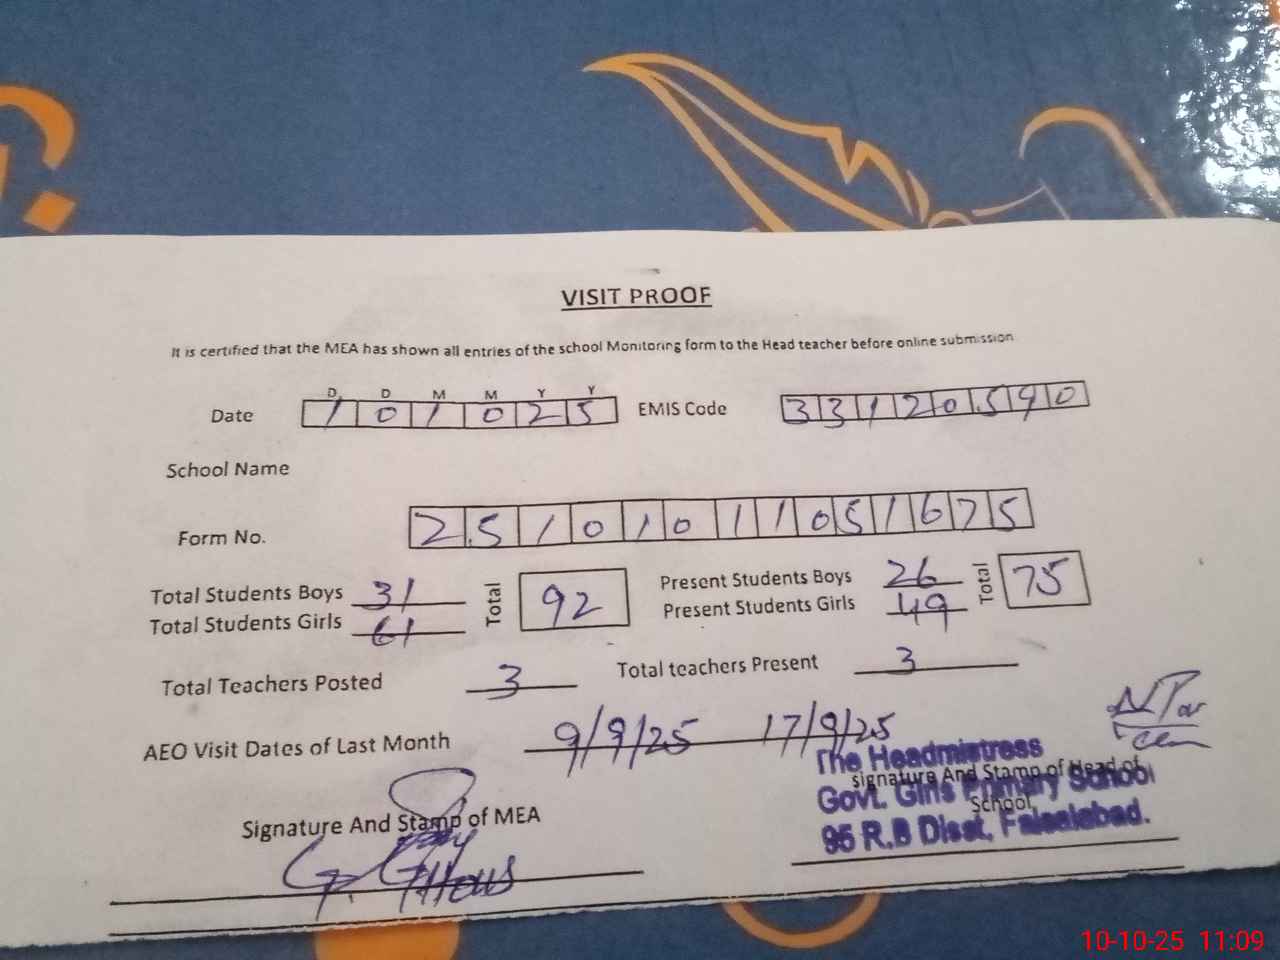 VISIT PROOF
It is certified that the MEA has shown all entries of the school Monitoring form to the Head teacher before online submission
D D M M Y Y
Date 1 0 1 0 2 5 EMIS Code 3 3 1 2 0 5 9 0
School Name
Form No. 2 5 1 0 1 0 1 1 0 5 1 6 7 5
Total Students Boys 31 Total 92 Present Students Boys 26 Total 75
Total Students Girls 61 Present Students Girls 49
Total Teachers Posted 3 Total teachers Present 3
AEO Visit Dates of Last Month 9/9/25 17/9/25
The Headmistress
Signature And Stamp of Head of
Govt. Girls Primary School
School
Signature And Stamp of MEA
95 R.B Disst, Faisalabad.
10-10-25 11:09